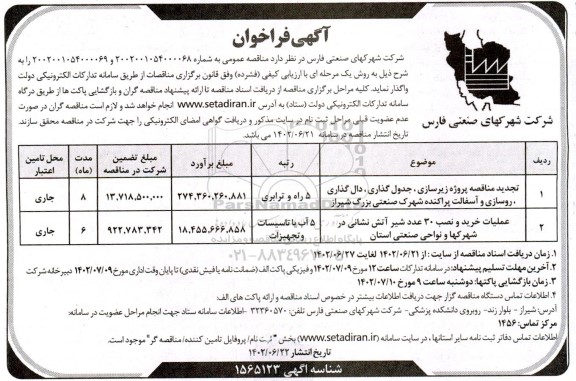 آگهی فراخوان
شرکت شهرکهای صنعتی فارس
شرکت شهرکهای صنعتی فارس در نظر دارد مناقصه عمومی به شماره ۲۰۰۲۰۰۱۰۵۴۰۰۰۰۶۸ و ۲۰۰۲۰۰۱۰۵۴۰۰۰۰۶۹ را به
شرح ذیل به روش یک مرحله ای با ارزیابی کیفی (فشرده) وفق قانون برگزاری مناقصات از طریق سامانه تدارکات الکترونیکی دولت
واگذار نماید. کلیه مراحل برگزاری مناقصه از دریافت اسناد مناقصه تا ارائه پیشنهاد مناقصه گران و بازگشایی پاکت ها از طریق درگاه
سامانه تدارکات الکترونیکی دولت (ستاد) به آدرس www.setadiran.ir انجام خواهد شد و لازم است مناقصه گران در صورت
عدم عضویت قبلی مراحل ثبت نام در سایت مذکور و دریافت گواهی امضای الکترونیکی را جهت شرکت در مناقصه محقق سازند.
تاریخ انتشار مناقصه در سامانه ۱۴۰۲/۰۶/۲۱ می باشد.
ردیف | موضوع | رتبه | مبلغ برآورد | مبلغ تضمین شرکت در مناقصه | مدت (ماه) | محل تامین اعتبار
۱ | تجدید مناقصه پروژه زیرسازی، جدول گذاری، دال گذاری، روسازی و آسفالت پراکنده شهرک صنعتی بزرگ شیراز | ۵ راه و ترابری | ۲۷۴,۳۶۰,۲۶۰,۸۸۱ | ۱۳,۷۱۸,۵۰۰,۰۰۰ | ۸ | جاری
۲ | عملیات خرید و نصب ۳۰ عدد شیر آتش نشانی در شهرکها و نواحی صنعتی استان | ۵ آب یا تاسیسات وتجهیزات | ۱۸,۴۵۵,۶۶۶,۸۵۸ | ۹۲۲,۷۸۳,۳۴۲ | ۶ | جاری
۱. زمان دریافت اسناد مناقصه از سایت : از ۱۴۰۲/۰۶/۲۱ لغایت ۱۴۰۲/۰۶/۲۷
۲. آخرین مهلت تسلیم پیشنهاد: در سامانه تدارکات ساعت ۱۲ مورخ ۱۴۰۲/۰۷/۰۹ و فیزیکی پاکت الف (ضمانت نامه یا فیش نقدی) تا پایان وقت اداری مورخ ۱۴۰۲/۰۷/۰۹ دبیرخانه شرکت
۳. زمان بازگشایی پاکتها: دوشنبه ساعت ۹ مورخ ۱۴۰۲/۰۷/۱۰
۴. اطلاعات تماس دستگاه مناقصه گزار جهت دریافت اطلاعات بیشتر در خصوص اسناد مناقصه و ارائه پاکت های الف:
آدرس: شیراز - بلوار زند- روبروی دانشکده پزشکی- شرکت شهرکهای صنعتی فارس تلفن: ۳۲۳۶۰۵۷۰ -اطلاعات سامانه ستاد جهت انجام مراحل عضویت در سامانه:
مرکز تماس: ۱۴۵۶
اطلاعات تماس دفاتر ثبت نامه سایر استانها ، در سایت سامانه (www.setadiran.ir) بخش "ثبت نام/ پروفایل تامین کننده/ مناقصه گر" موجود است.
تاریخ انتشار ۱۴۰۲/۰۶/۲۲
شناسه آگهی ۱۵۶۵۱۲۳